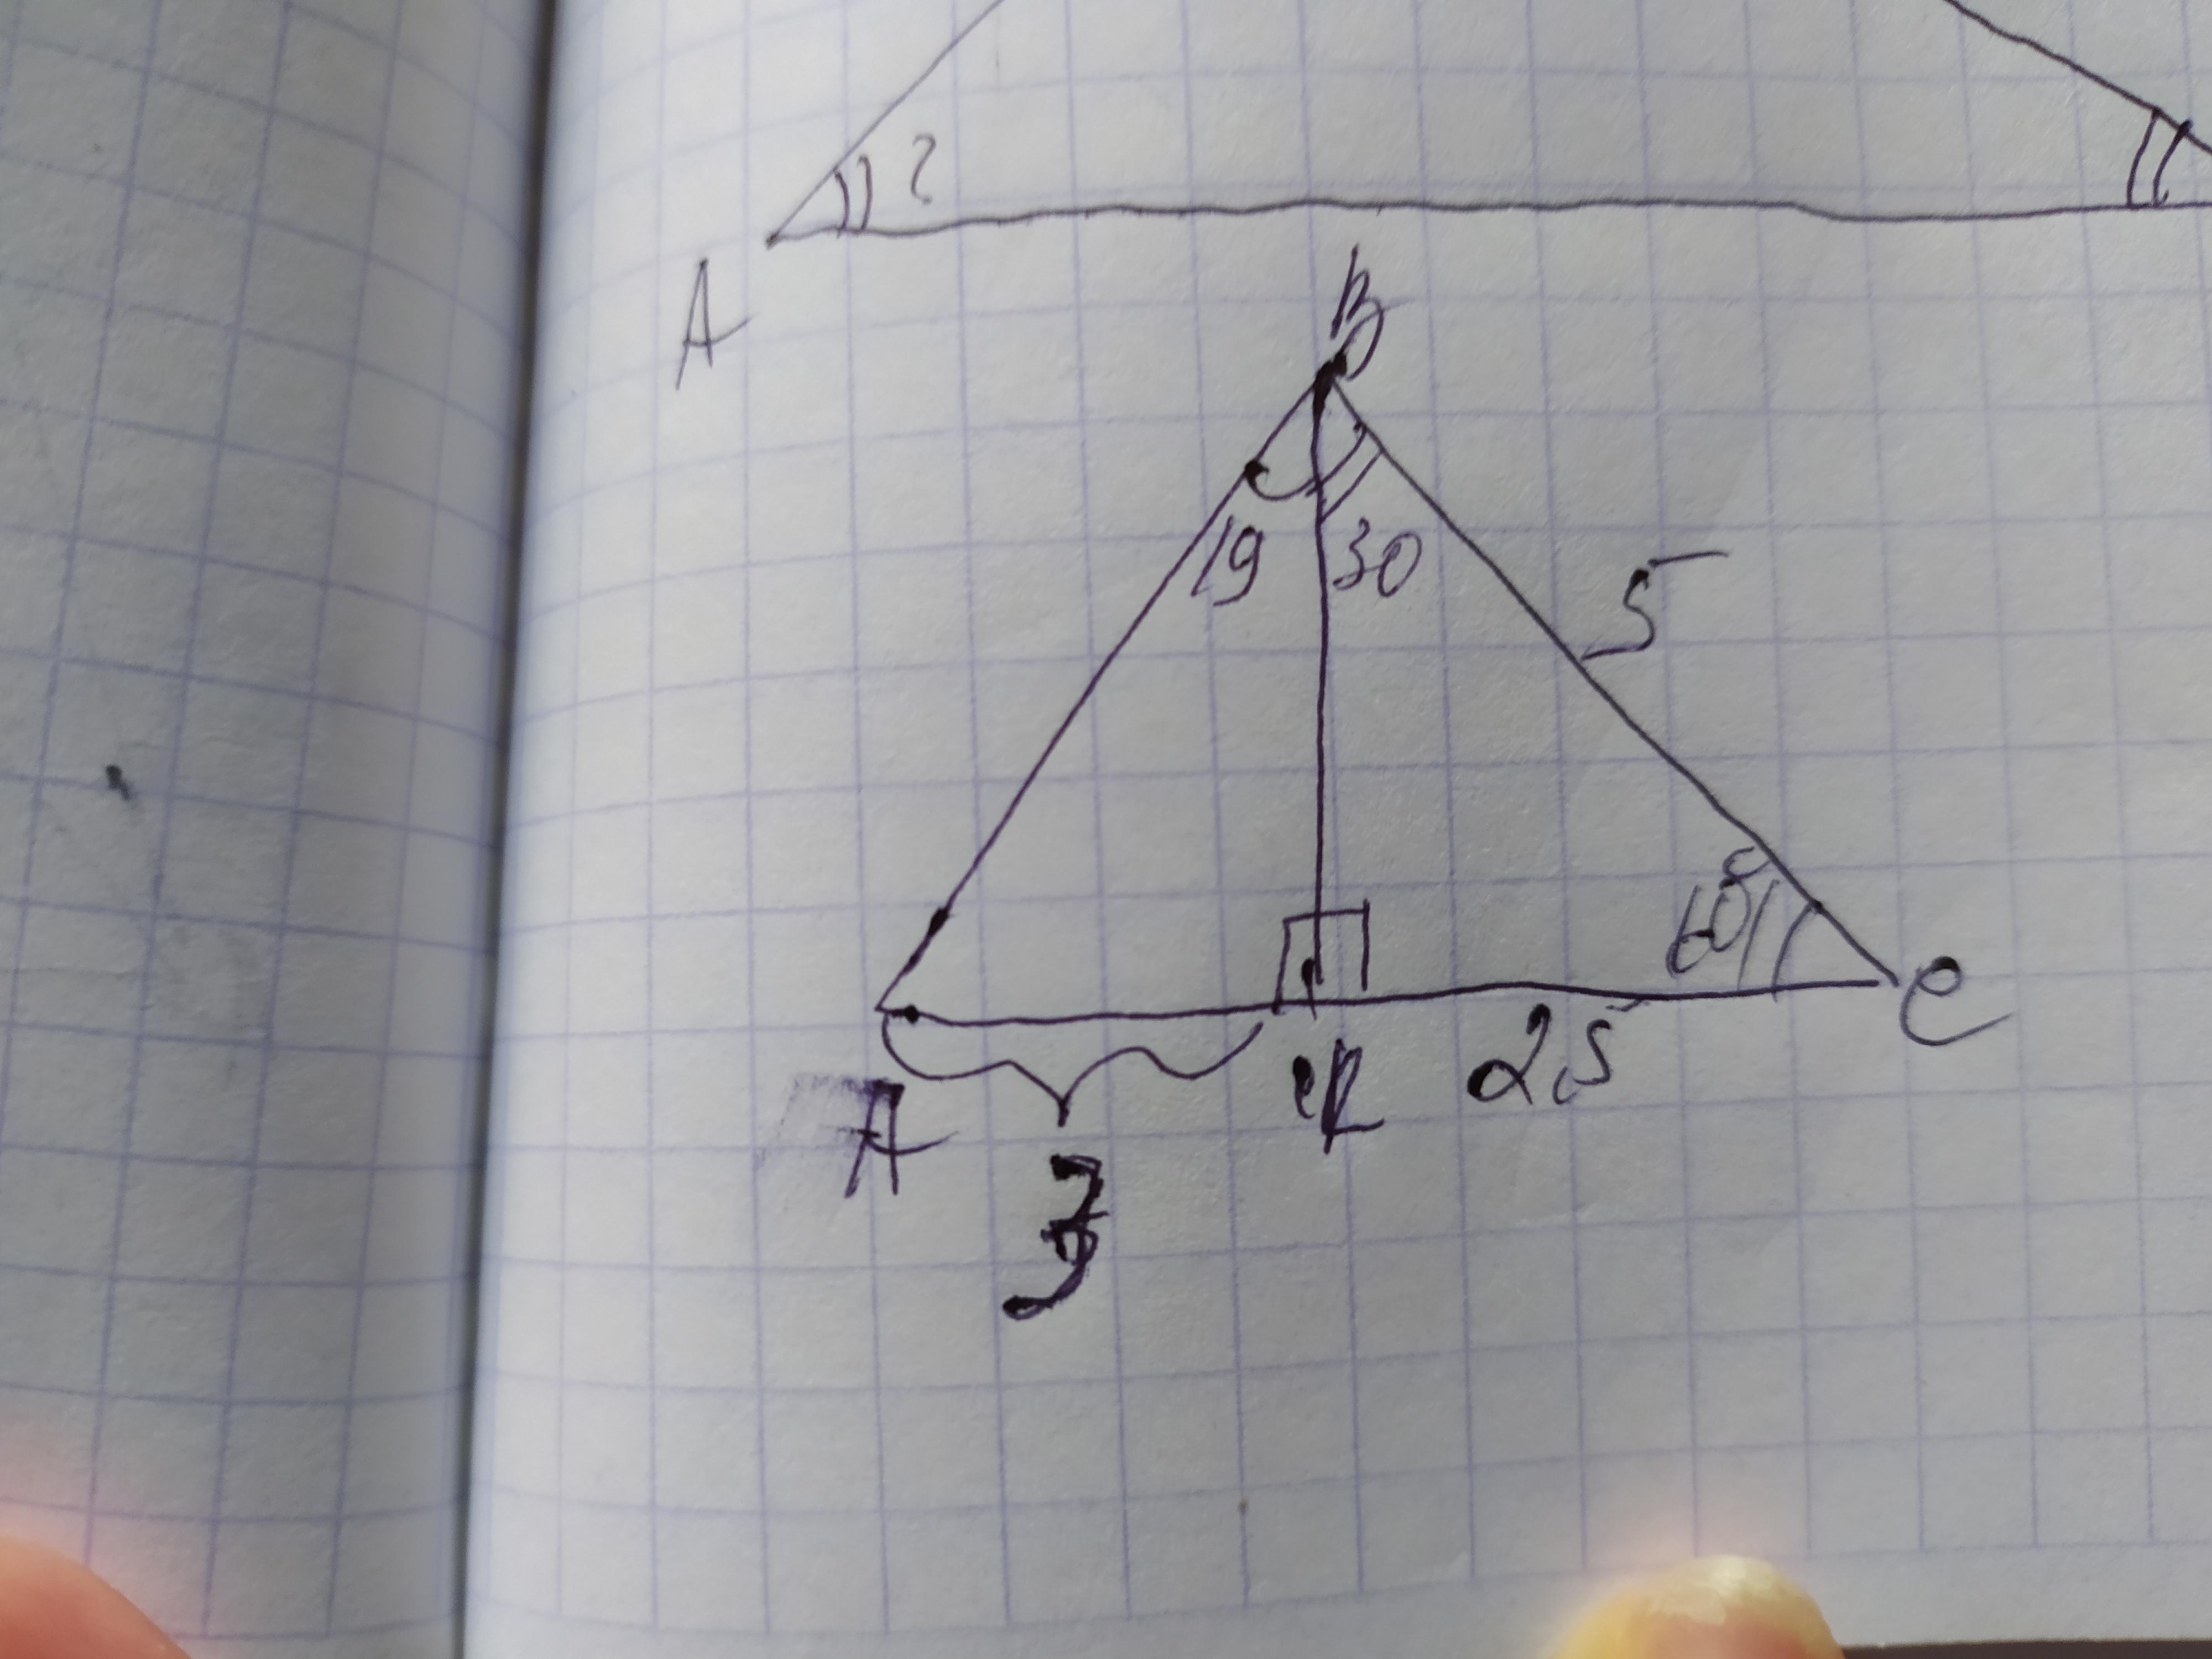 ?
A
B
19 30
5
60°
C
2,5
A
3